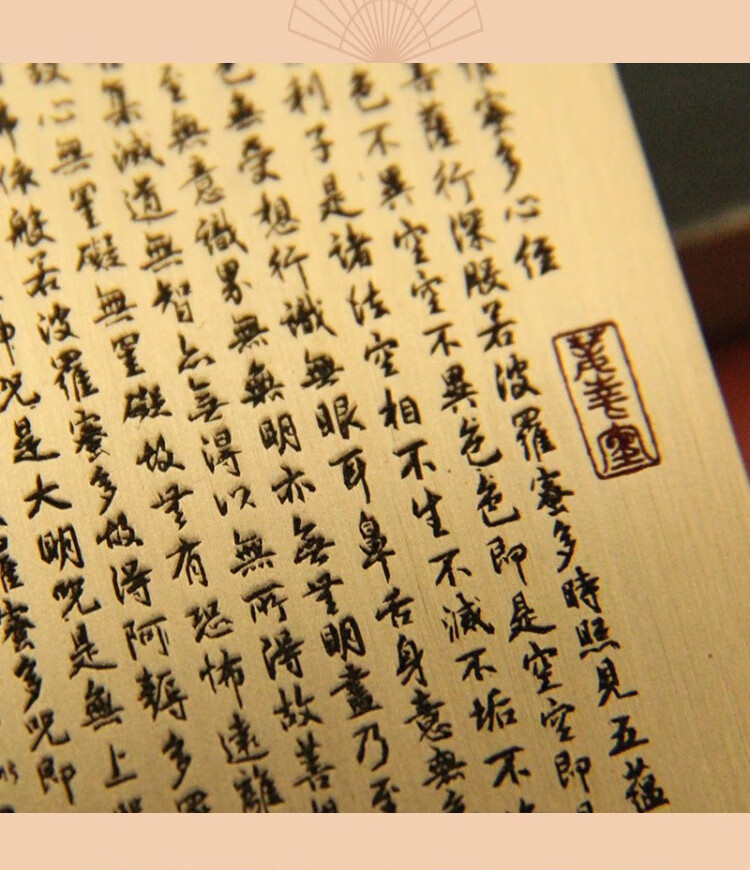 蜜多心経
菩薩行深般若波羅蜜多時照見五蘊
色不異空空不異色色即是空空即是
利子是諸法空相不生不滅不垢不
色無受想行識無眼耳鼻舌身意無
至無意識界無無明亦無無明盡乃至
集滅道無智亦無得以無所得故菩提
故心無罣礙無罣礙故無有恐怖遠離
依般若波羅蜜多故得阿耨多羅
神咒是大明咒是無上
羅蜜多咒即